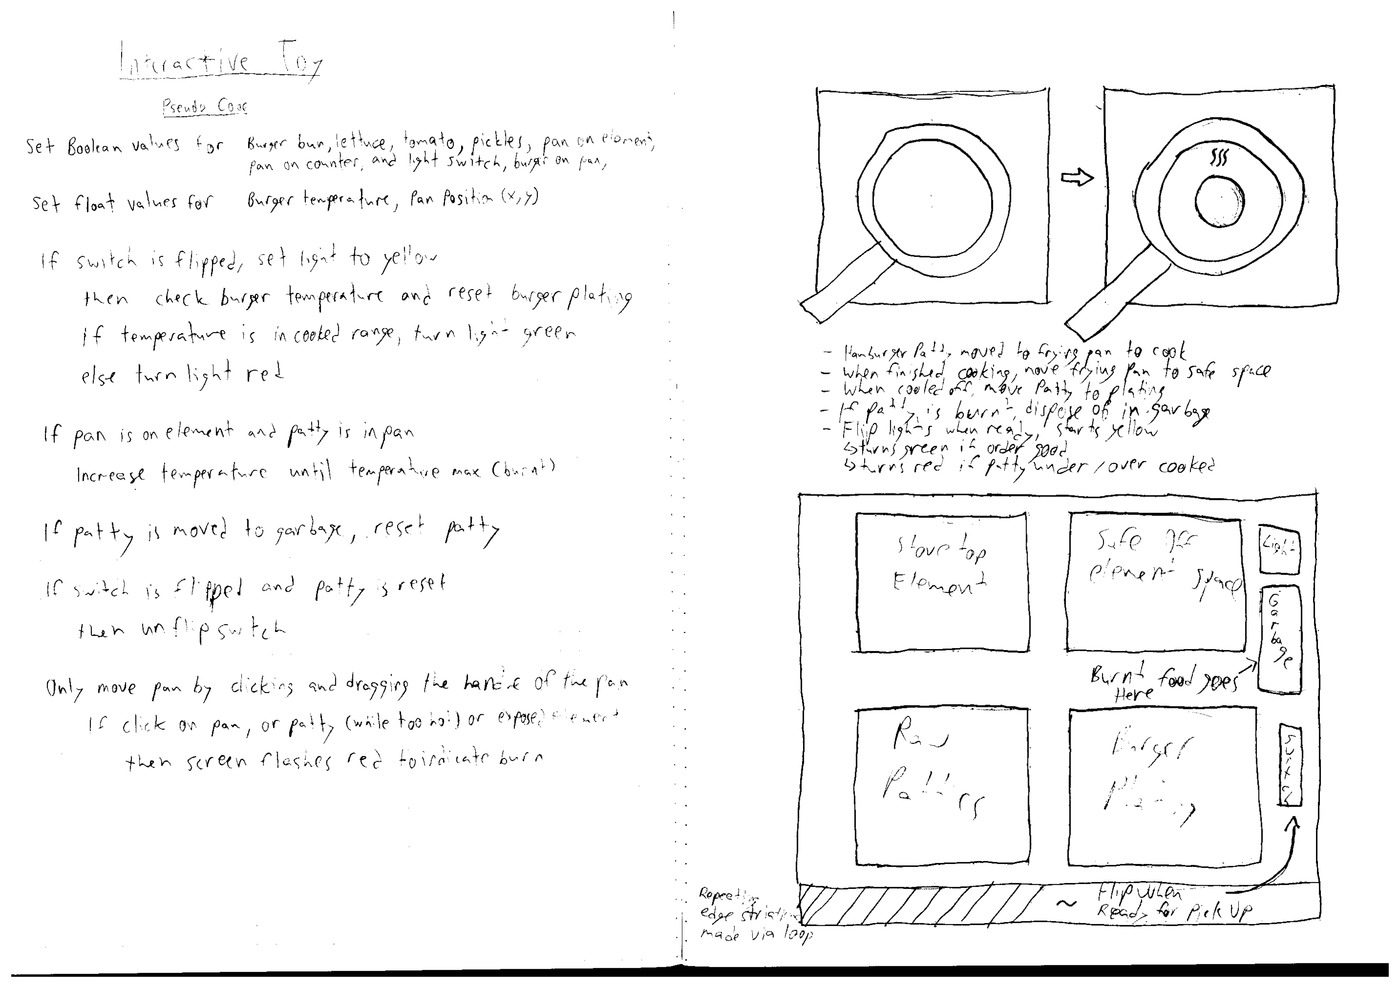 Interactive Toy
Pseudo Code
Set Boolean values for Burger bun, lettuce, tomato, pickles, pan on element,
pan on counter, and light switch, burger on pan,
Set float values for Burger temperature, Pan Position (x,y)
If switch is flipped, set light to yellow
then check burger temperature and reset burger plating
if temperature is in cooked range, turn light green
else turn light red
If pan is on element and patty is in pan
Increase temperature until temperature max (burnt)
If patty is moved to garbage, reset patty
If switch is flipped and patty is reset
then unflip switch
Only move pan by clicking and dragging the handle of the pan
If click on pan, or patty (while too hot) or exposed element
then screen flashes red to indicate burn
- Hamburger Patty moved to frying pan to cook
- when finished cooking, move frying pan to safe space
- when cooled off, move Patty to plating
- If patty is burnt, dispose of in garbage
- Flip lights when ready, starts yellow
↳ turns green if order good
↳ turns red if patty under/over cooked
Stove top
Element
Safe Off
element space
Light
Garbage
Burnt food goes
Here
Raw
Patties
Burger
Plating
Switch
Flip When
Ready for Pick Up
Repeating
edge striations
made via loop